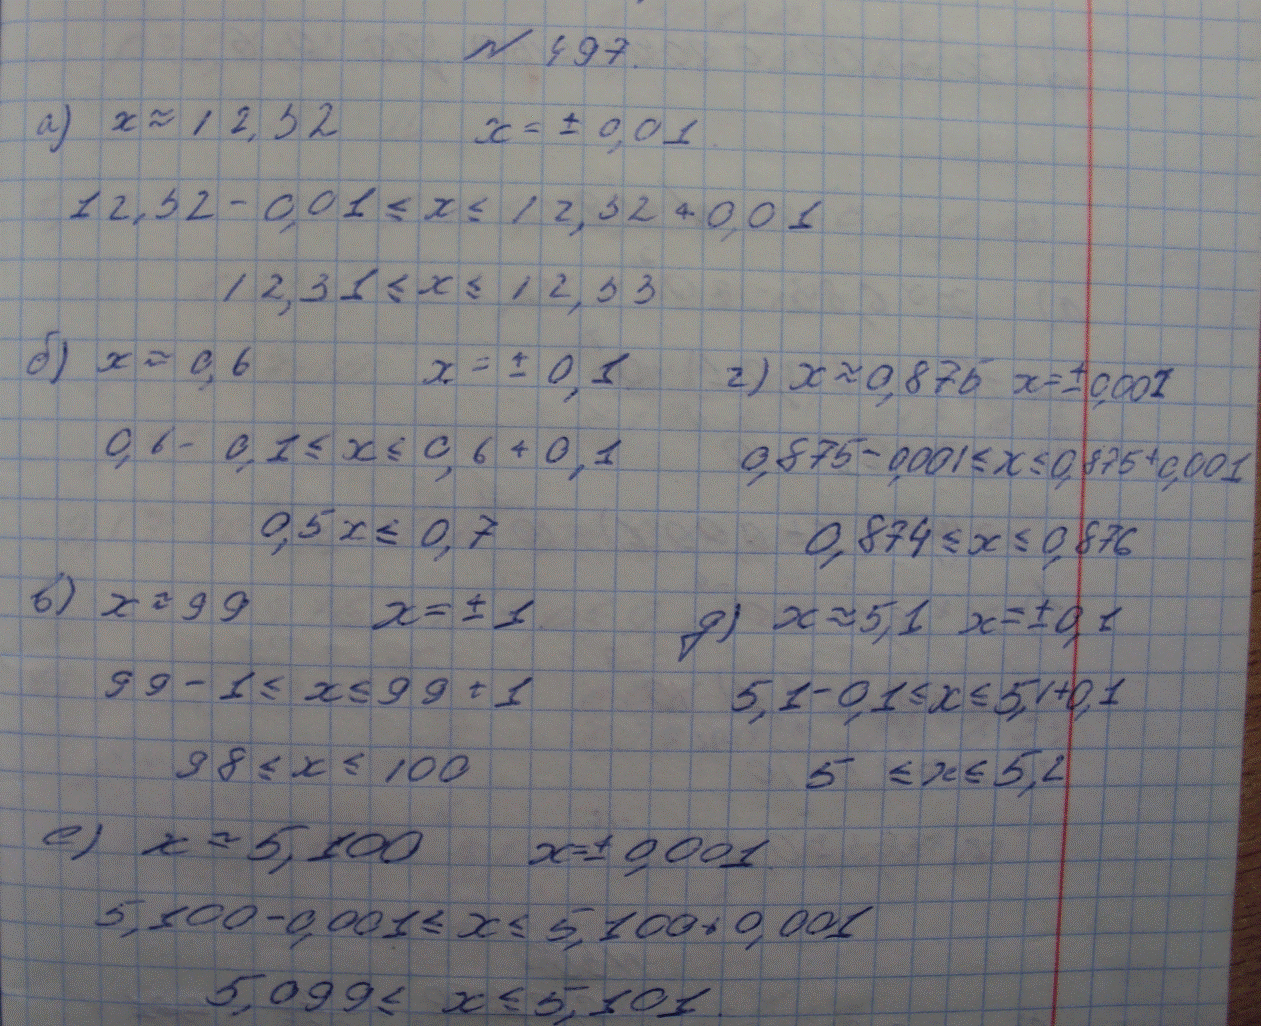 № 497.
а) x ≈ 12,32 x = ± 0,01.
12,32 - 0,01 ≤ x ≤ 12,32 + 0,01
12,31 ≤ x ≤ 12,33
б) x ≈ 0,6 x = ± 0,1.
0,6 - 0,1 ≤ x ≤ 0,6 + 0,1
0,5 x ≤ 0,7
в) x ≈ 99 x = ± 1.
99 - 1 ≤ x ≤ 99 + 1
98 ≤ x ≤ 100
г) x ≈ 0,875 x = ± 0,001
0,875 - 0,001 ≤ x ≤ 0,875 + 0,001
0,874 ≤ x ≤ 0,876
д) x ≈ 5,1 x = ± 0,1
5,1 - 0,1 ≤ x ≤ 5,1 + 0,1
5 ≤ x ≤ 5,2
е) x ≈ 5,100 x = ± 0,001.
5,100 - 0,001 ≤ x ≤ 5,100 + 0,001
5,099 ≤ x ≤ 5,101.